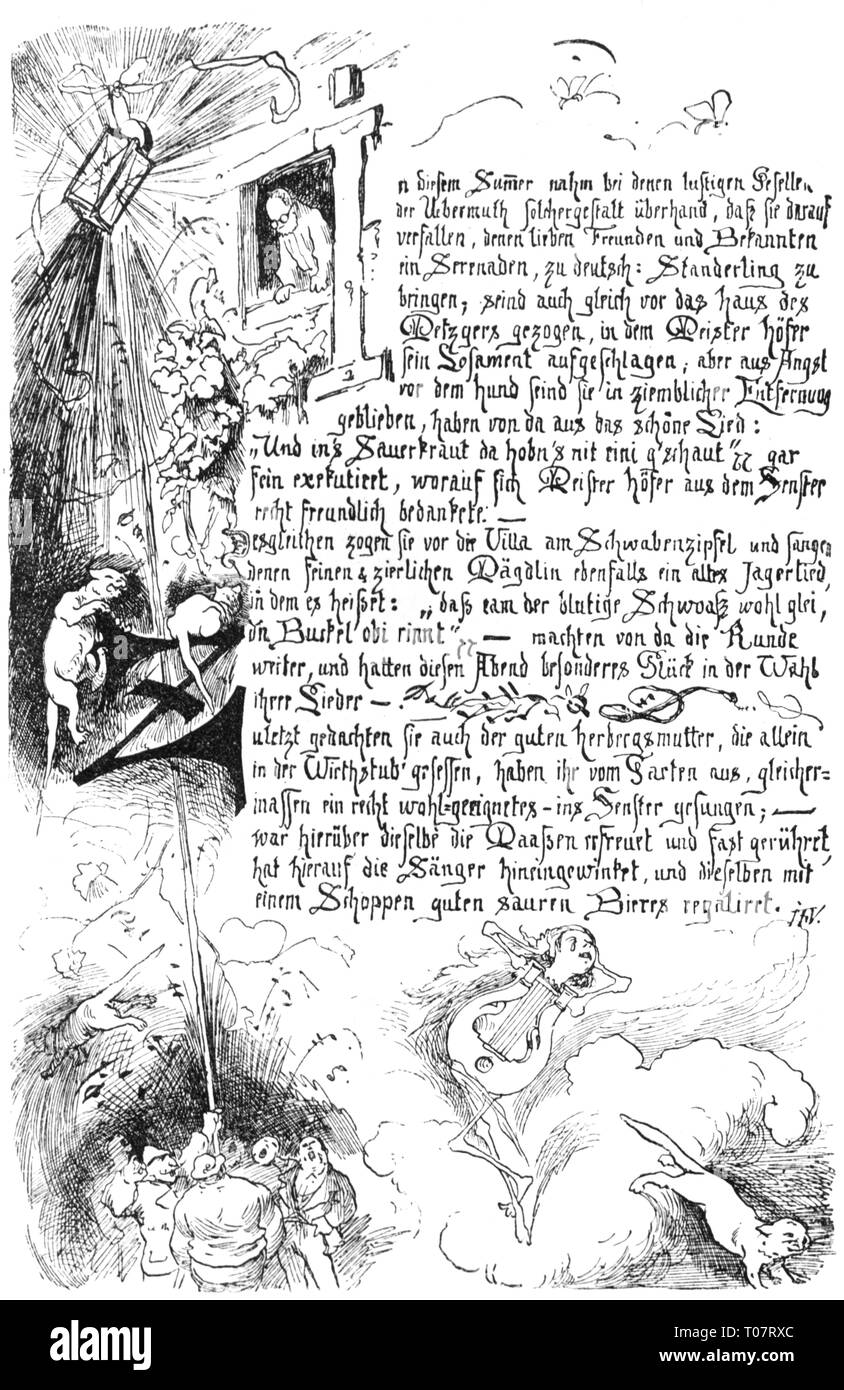 n diesem Sum̄er nahm bei denen lustigen Gesellen
der Übermuth solchergestalt überhand, daß sie darauf
verfallen, denen lieben Freunden und Bekannten
ein Serenaden, zu deutsch: Standerling zu
bringen; seind auch gleich vor das haus des
Metzgers gezogen, in dem Meister höfer
sein Losament aufgeschlagen; aber aus Angst
vor dem hund seind sie in ziemblicher Entfernung
geblieben, haben von da aus das schöne Lied:
„Und in's Sauerkraut da hobn's nit eini g'schaut" gar
fein exekutiret, worauf sich Meister höfer aus dem Fenster
recht freundlich bedankete. —
Desgleichen zogen sie vor die Villa am Schwabenzipfel und sangen
denen feinen & zierlichen Mägdlin ebenfalls ein altes Jagerlied,
in dem es heißet: „daß eam der blutige Schwoaß wohl glei,
Buckel obi rinnt" — machten von da die Runde
weiter, und hatten diesen Abend besonderes Glück in der Wahl
ihrer Lieder —.
uletzt gedachten sie auch der guten herbergsmutter, die allein
in der Wirthstub' gesessen, haben ihr vom Garten aus, gleicher-
massen ein recht wohl=geeignetes - ins Fenster gesungen; —
war hierüber dieselbe die Maaßen erfreuet und fast gerühret,
hat hierauf die Sänger hineingewinket, und dieselben mit
einem Schoppen guten sauren Bieres regaliret.
alamy
Image ID: T07RXC
www.alamy.com